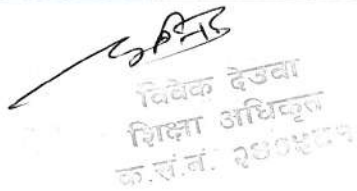 विवेक देउवा
शिक्षा अधिकृत
क.सं.नं.